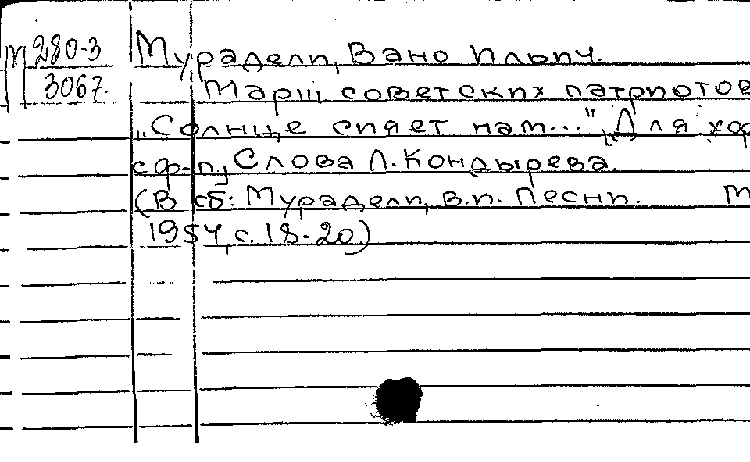 М 280-3 Мурадели, Вано Ильич.
3067. Марш советских патриотов
„Солнце сияет нам..." Для хор
с ф-п., Слова Л. Кондырева.
(В сб: Мурадели, В.И. Песни. М
1954, с. 18-20.)